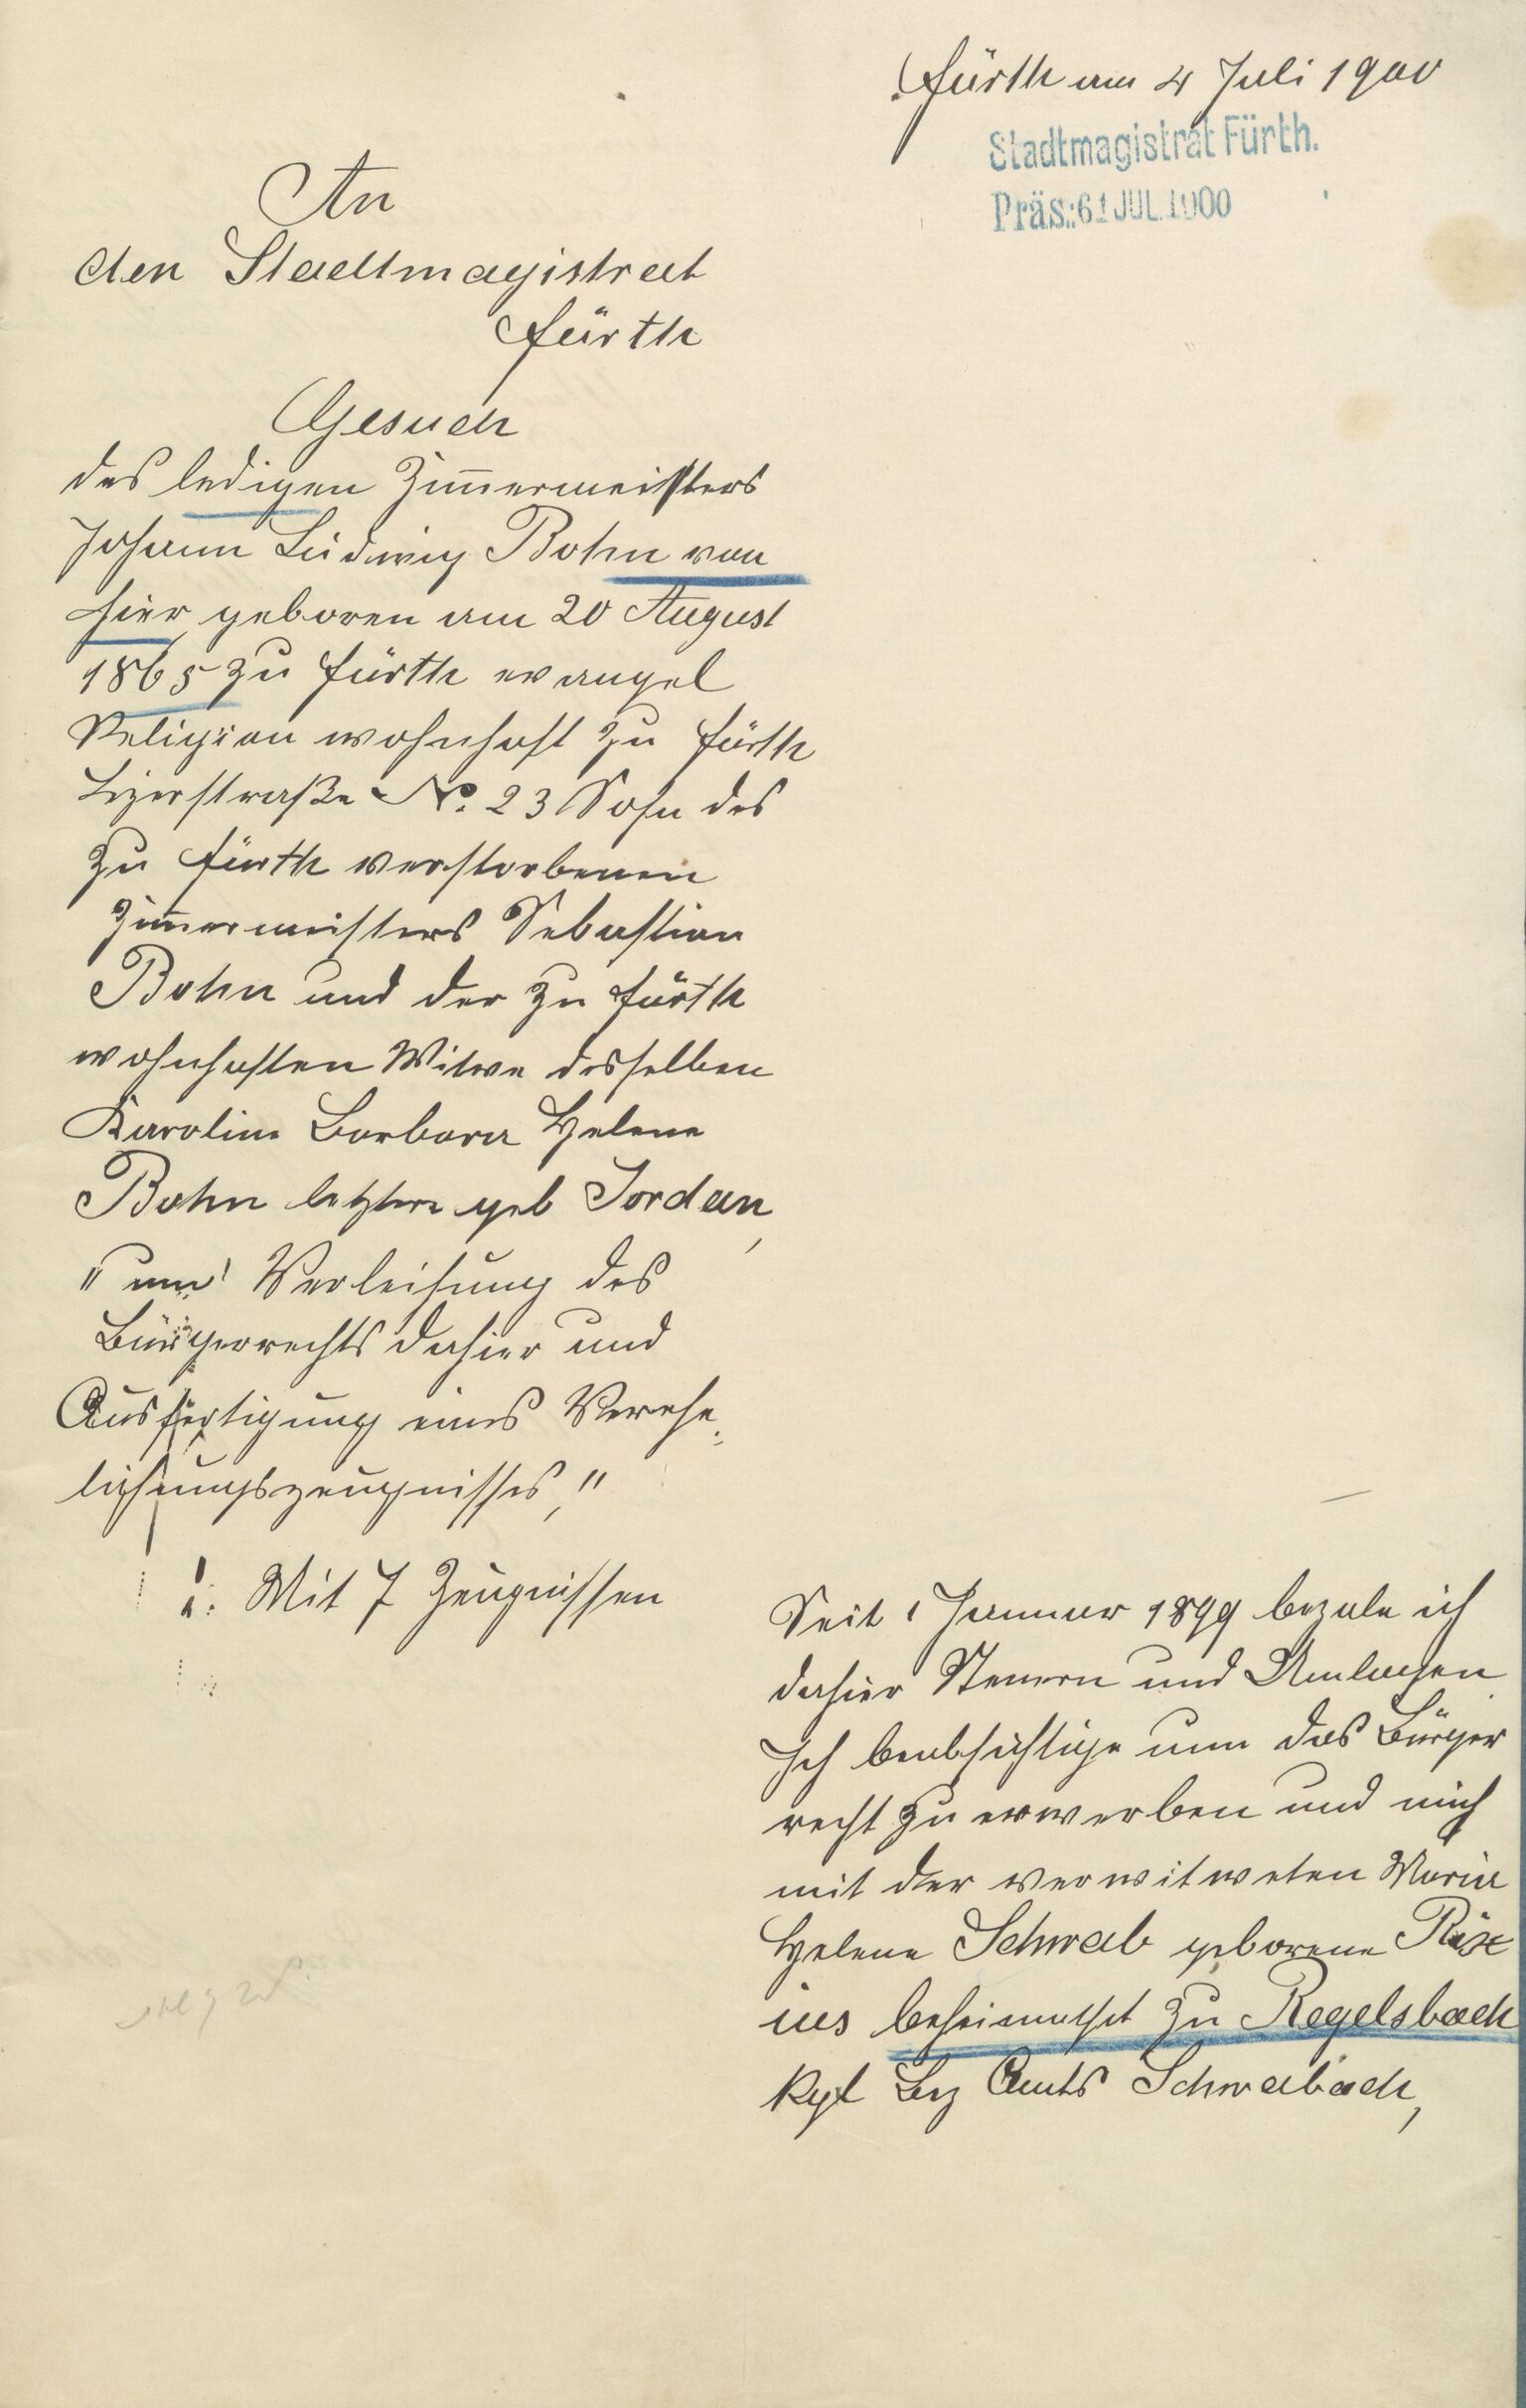 Fürth am 4 Juli 1900
Stadtmagistrat Fürth.
Präs.: JUL. 1900
An
den Stadtmagistrat
Fürth
Gesuch
des ledigen Zim̄ermeisters
Johann Ludwig Bohn von
hier, geboren am 20 August
1865 zu Fürth evangel
Religion wohnhaft zu Fürth
No. 23 Sohn des
zu Fürth verstorbenen
Zim̄ermeisters Sebastian
Bohn und der zu Fürth
wohnhaften Witwe desselben
Karolina Barbara Helene
Bohn letztere geb Jordan,
"um" Verleihung des
Bürgerrechts dahier und
Ausfertigung eines Verehe-
lichungszeugnisses,"
Mit 7 Zeugnissen
Seit 1 Januar 1899 bezale ich
dahier Steuern und Umlagen
Ich beabsichtige nun das Bürger
recht zu erwerben und mich
mit der verwitweten Maria
Helene Schwab geborene Rix
ius beheimathet zu Regelsbach
kgl Bez Amts Schwabach,